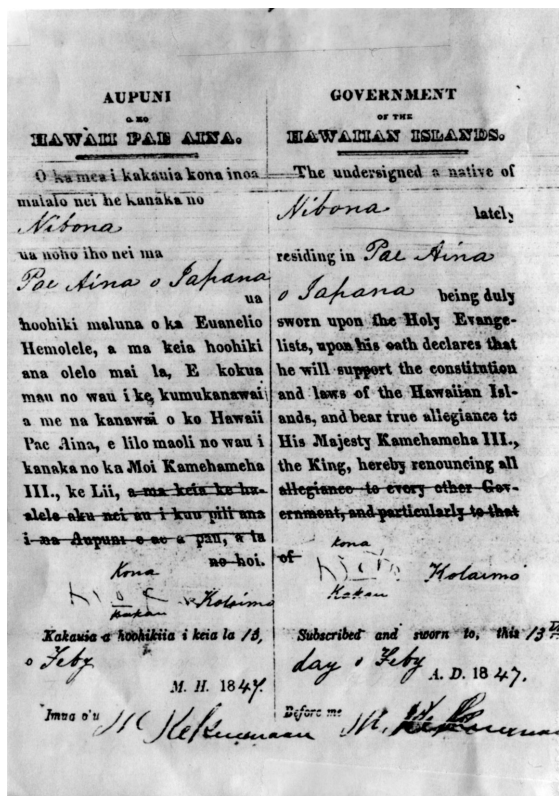 AUPUNI
O KO
HAWAII PAE AINA.
O ka mea i kakauia kona inoa
malalo nei he kanaka no
Nibona
ua noho iho nei ma
Pae Aina o Iapana
ua
hoohiki maluna o ka Euanelio
Hemolele, a ma keia hoohiki
ana olelo mai la, E kokua
mau no wau i ke kumukanawai
a me na kanawai o ko Hawaii
Pae Aina, e lilo maoli no wau i
kanaka no ka Moi Kamehameha
III., ke Lii, a ma keia ke ha-
alele aku nei au i kuu pili ana
i na Aupuni e ae a pau, a la
no hoi.
Kona
Kolaimo
Kakau
Kakauia a hoohikiia i keia la 13,
o Feby
M. H. 1847.
Imua o'u
GOVERNMENT
OF THE
HAWAIIAN ISLANDS.
The undersigned a native of
Nibona lately
residing in Pae Aina
o Iapana being duly
sworn upon the Holy Evange-
lists, upon his oath declares that
he will support the constitution
and laws of the Hawaiian Isl-
ands, and bear true allegiance to
His Majesty Kamehameha III.,
the King, hereby renouncing all
allegiance to every other Gov-
ernment, and particularly to that
of
Kona
Kolaimo
Kakau
Subscribed and sworn to, this 13th
day o Feby A. D. 1847.
Before me M.